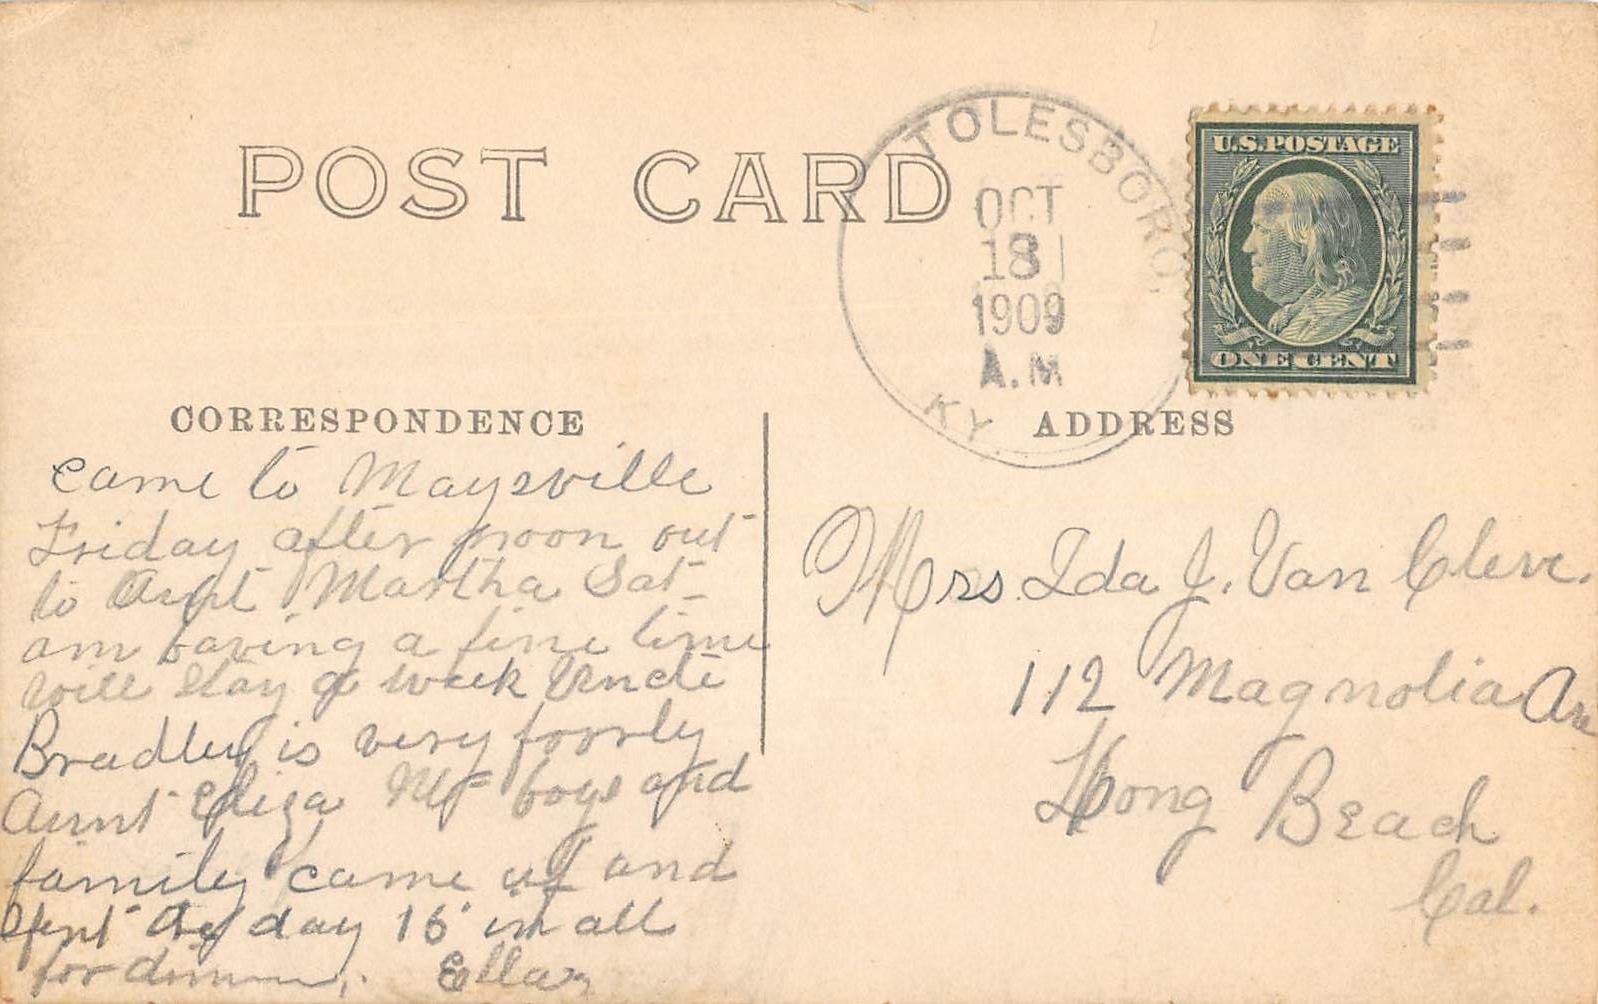 POST CARD
TOLESBORO,
OCT
18
1909
A.M
KY.
U.S. POSTAGE
ONE CENT
CORRESPONDENCE
came to Maysville
Friday after noon out
to Aunt Martha Sat
am having a fine time
will stay a week Uncle
Bradley is very poorly
Aunt Eliza boys and
family came up and
spent day 16 in all
for dinner. Ella
ADDRESS
Mrs Ida J. Van Cleve.
112 Magnolia Ave
Long Beach
Cal.